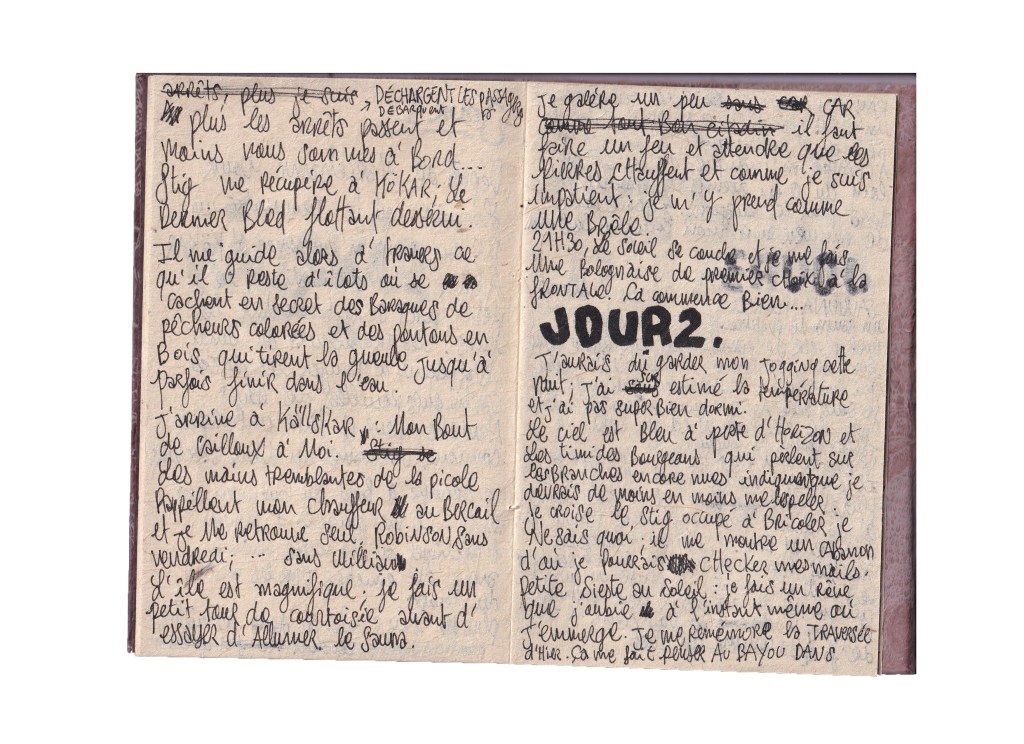 arrêts, plus je suis DÉCHARGENT LES PASSAGERS
DÉBARQUENT
plus les arrêts passent et
moins nous sommes à Bord...
Stig me récupère à KÖKAR; Le
Dernier Bled flottant desservi.
Il me guide alors à travers ce
qu'il reste d'îlots où se
cachent en secret des Baraques de
pêcheurs colorées et des pontons en
Bois qui tirent la gueule jusqu'à
parfois finir dans l'eau.
J'arrive à Källskär : Mon Bout
de Cailloux à Moi. Stig se
Les mains tremblantes de la picole
Rappellent mon chauffeur au Bercail
et je Me retrouve seul, Robinson sans
vendredi; ... sans Million
L'île est magnifique : je fais un
petit tour de courtoisie avant d'
essayer d'Allumer le Sauna.
je galère un peu sans car CAR
comme tout Bon citadin il faut
faire un feu et attendre que les
pierres chauffent et comme je suis
impatient : je m'y prend comme
une Brêle.
21H30, Le soleil se couche et je me fais
une Bolognaise de premier choix à la
frontale. Ca commence Bien...
JOUR 2.
J'aurais dû garder mon Jogging cette
nuit; j'ai sous sur estimé la température
et j'ai pas super Bien dormi.
Le ciel est Bleu à perte d'Horizon et
Les timides Bourgeons qui perlent sur
les Branches encore nues indiquent que je
devrais de moins en moins me les peler.
Je croise le Stig occupé à Bricoler je
Ne sais quoi : il me montre un Cabanon
d'où je pourrais checker mes mails.
Petite Sieste au Soleil : je fais un rêve
que j'oublie à l'instant même où
j'emmerge. Je me remémore la TRAVERSÉE
d'Hier. Ca me fait penser AU BAYOU DANS